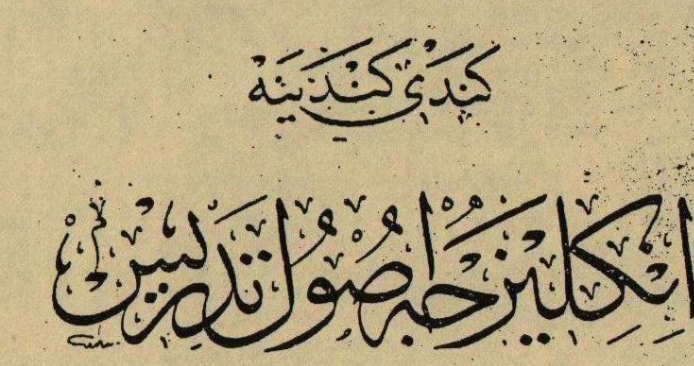 كندی كندینه
انكلیزجه اصول تدریس